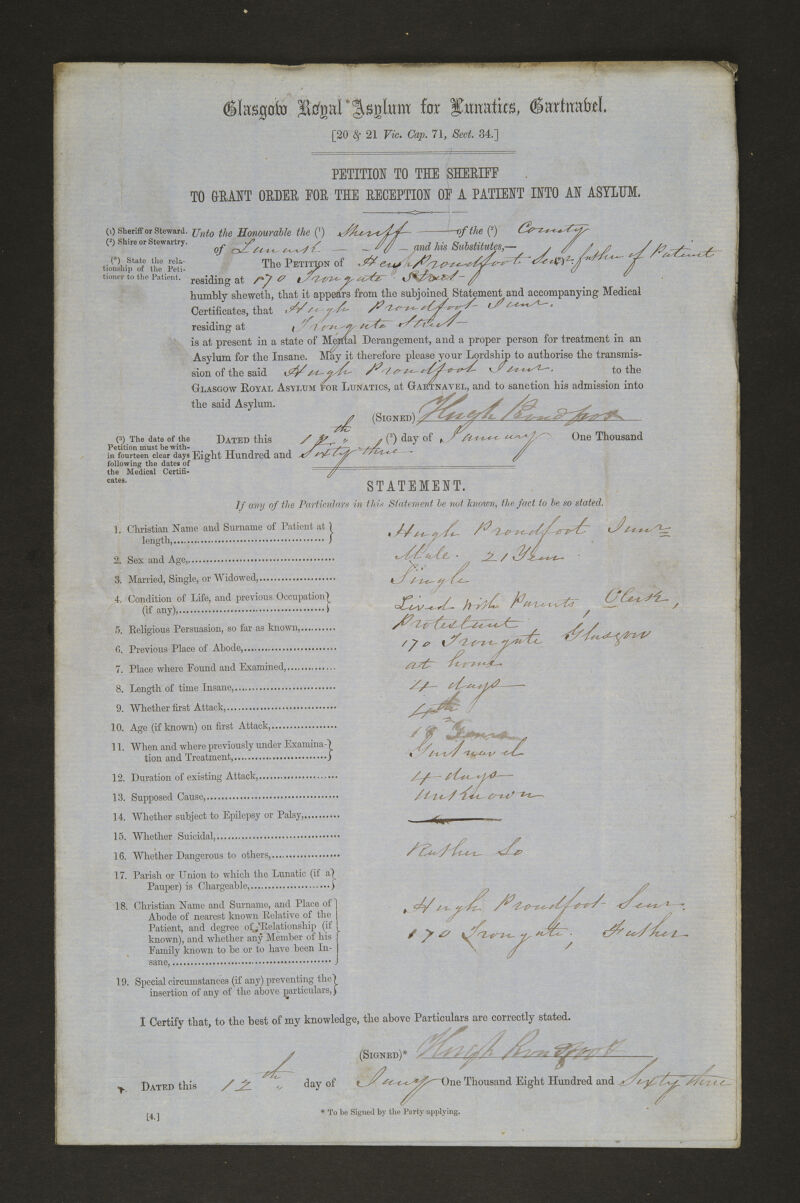 Glasgow Royal Asylum for Lunatics, Gartnabel.
[20 & 21 Vic. Cap. 71, Sect. 34.]
PETITION TO THE SHERIFF
TO GRANT ORDER FOR THE RECEPTION OF A PATIENT INTO AN ASYLUM.
(1) Sheriff or Steward.
(2) Shire or Stewartry.
Unto the Honourable the (1) Sheriff of the (2) County
of Lanark — and his Substitutes,—
(*) State the rela-
tionship of the Peti-
tioner to the Patient.
The PETITION of Hew Proudfoot Senr. father of Patient
residing at 170 Trongate Street
humbly sheweth, that it appears from the subjoined Statement and accompanying Medical
Certificates, that Hugh Proudfoot Junr.
residing at Trongate Street
is at present in a state of Mental Derangement, and a proper person for treatment in an
Asylum for the Insane. May it therefore please your Lordship to authorise the transmis-
sion of the said Hugh Proudfoot Junr. to the
GLASGOW ROYAL ASYLUM FOR LUNATICS, at GARTNAVEL, and to sanction his admission into
the said Asylum.
(SIGNED) Hugh Proudfoot
(3) The date of the
Petition must be with-
in fourteen clear days
following the dates of
the Medical Certifi-
cates.
DATED this 12th (3) day of January One Thousand
Eight Hundred and Sixty three
STATEMENT.
If any of the Particulars in this Statement be not known, the fact to be so stated.
1. Christian Name and Surname of Patient at
length, Hugh Proudfoot Junr
2. Sex and Age, Male. 21 Years
3. Married, Single, or Widowed, Single
4. Condition of Life, and previous Occupation
(if any), Lived with Parents, Clerk,
5. Religious Persuasion, so far as known, Protestant
6. Previous Place of Abode, 170 Trongate Glasgow
7. Place where Found and Examined, at home
8. Length of time Insane, 4 days
9. Whether first Attack, 4th
10. Age (if known) on first Attack, 18 Years
11. When and where previously under Examina-
tion and Treatment, Gartnavel
12. Duration of existing Attack, 4 days
13. Supposed Cause, unknown
14. Whether subject to Epilepsy or Palsy, —
15. Whether Suicidal,
16. Whether Dangerous to others, Rather So
17. Parish or Union to which the Lunatic (if a
Pauper) is Chargeable,
18. Christian Name and Surname, and Place of
Abode of nearest known Relative of the
Patient, and degree of Relationship (if
known), and whether any Member of his
Family known to be or to have been In-
sane,
Hugh Proudfoot Senr.
170 Trongate; Father
19. Special circumstances (if any) preventing the
insertion of any of the above particulars,
I Certify that, to the best of my knowledge, the above Particulars are correctly stated.
(SIGNED)* Hugh Proudfoot
DATED this 12th day of Jany One Thousand Eight Hundred and Sixty three
* To be Signed by the Party applying.
[4.]